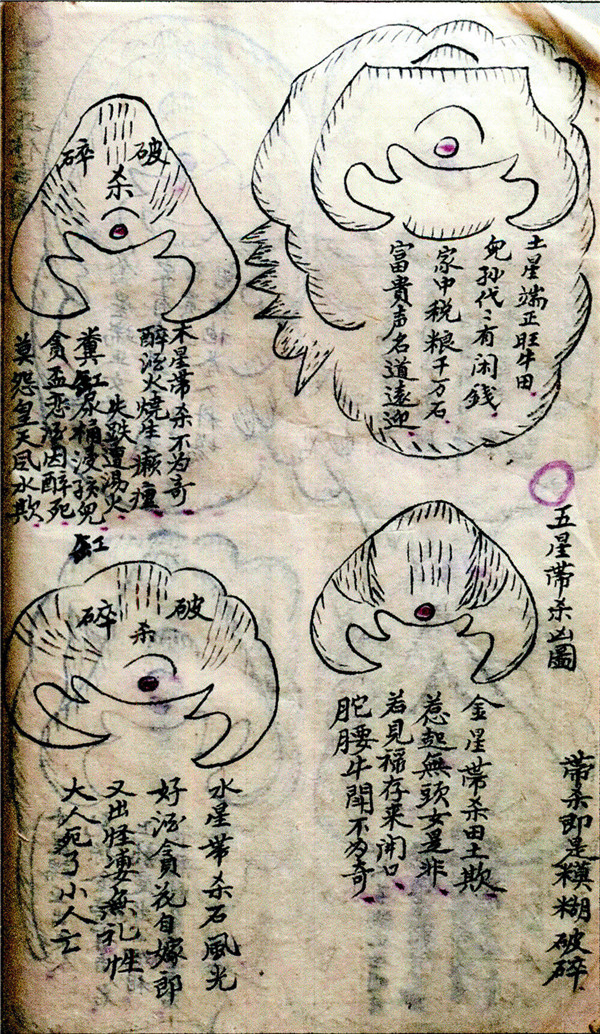 土星端正旺牛田
兒孙代〻有闲錢
家中税粮千万石
富貴声名道遠迎
破碎
杀
木星带杀不为奇
醉酒火燒生癞瘇
失跌遭湯火
糞缸尿桶浸孩兒
貪盃恋酒因醉死
莫怨皇天風水欺
缸
五星带杀凶圖
带杀即是糢糊破碎
金星带杀田土欺
惹起無頭女是非
若見福存来開口
腰牛開不为奇
破碎
杀
水星带杀石風光
好酒貪花自嫁郎
又出怪凄無礼性
大人死了小人亡